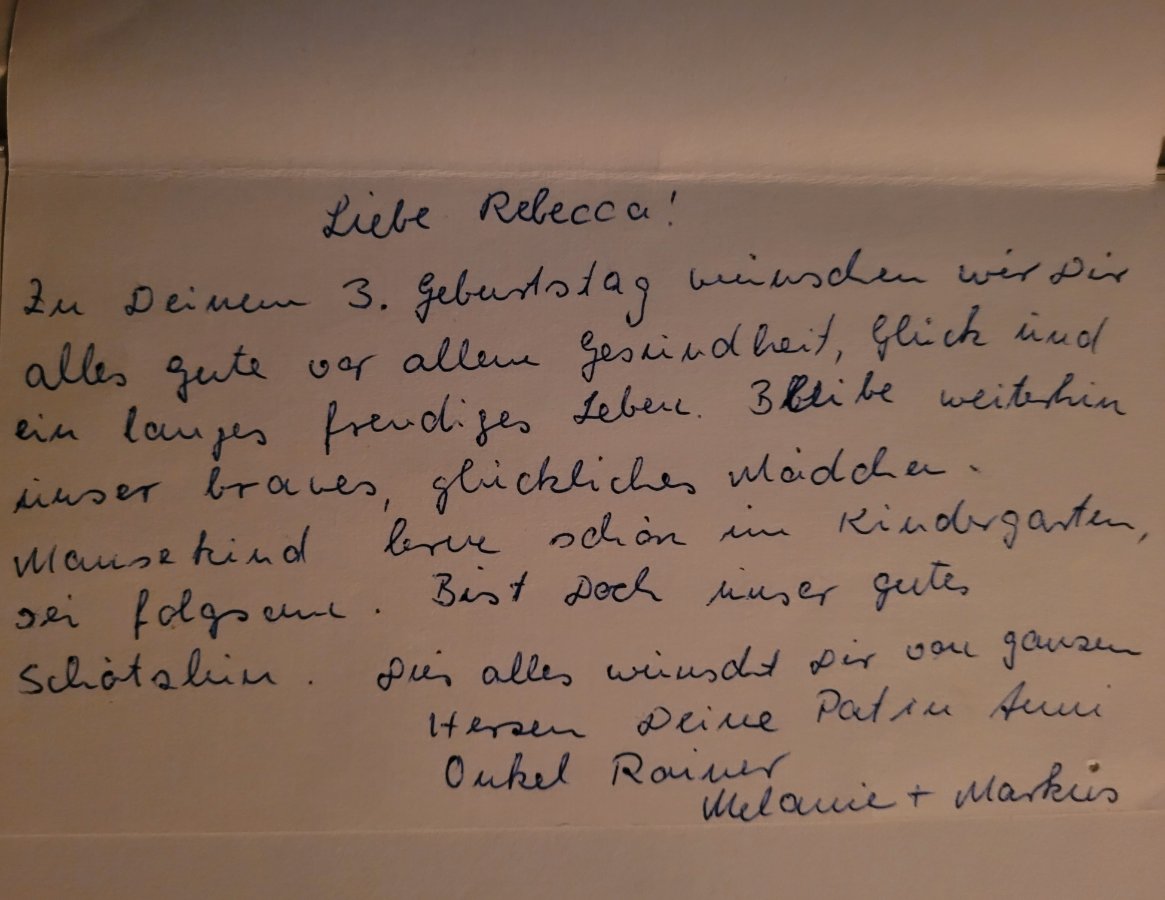 Liebe Rebecca!
Zu Deinem 3. Geburtstag wünschen wir Dir
alles gute vor allem Gesundheit, Glück und
ein langes freudiges Leben. Bleibe weiterhin
unser braves, glückliches Mädchen.
Mausekind lerne schön im Kindergarten,
sei folgsam. Bist Doch unser gutes
Schätzlein. Dies alles wünscht Dir von ganzen
Herzen Deine Patin Anni
Onkel Rainer
Melanie + Markus